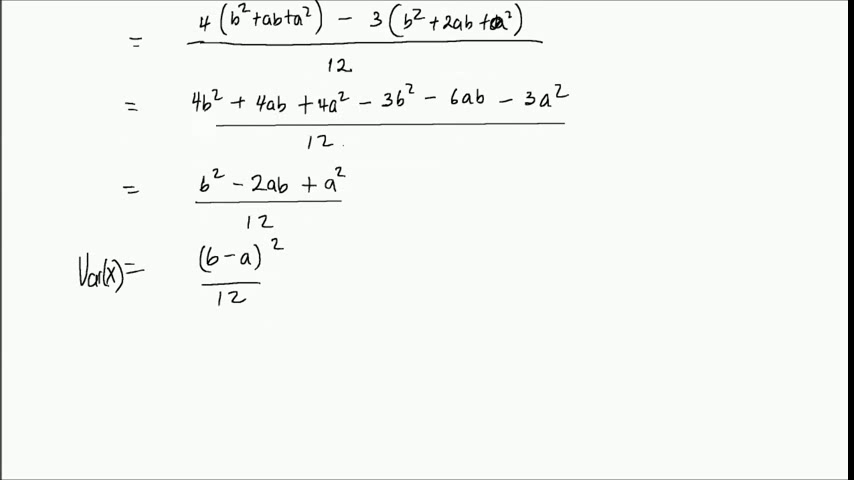 = 4(b²+ab+a²) − 3(b²+2ab+a²)
12
= 4b² + 4ab + 4a² − 3b² − 6ab − 3a²
12
= b² − 2ab + a²
12
Var(x) = (b−a)²
12